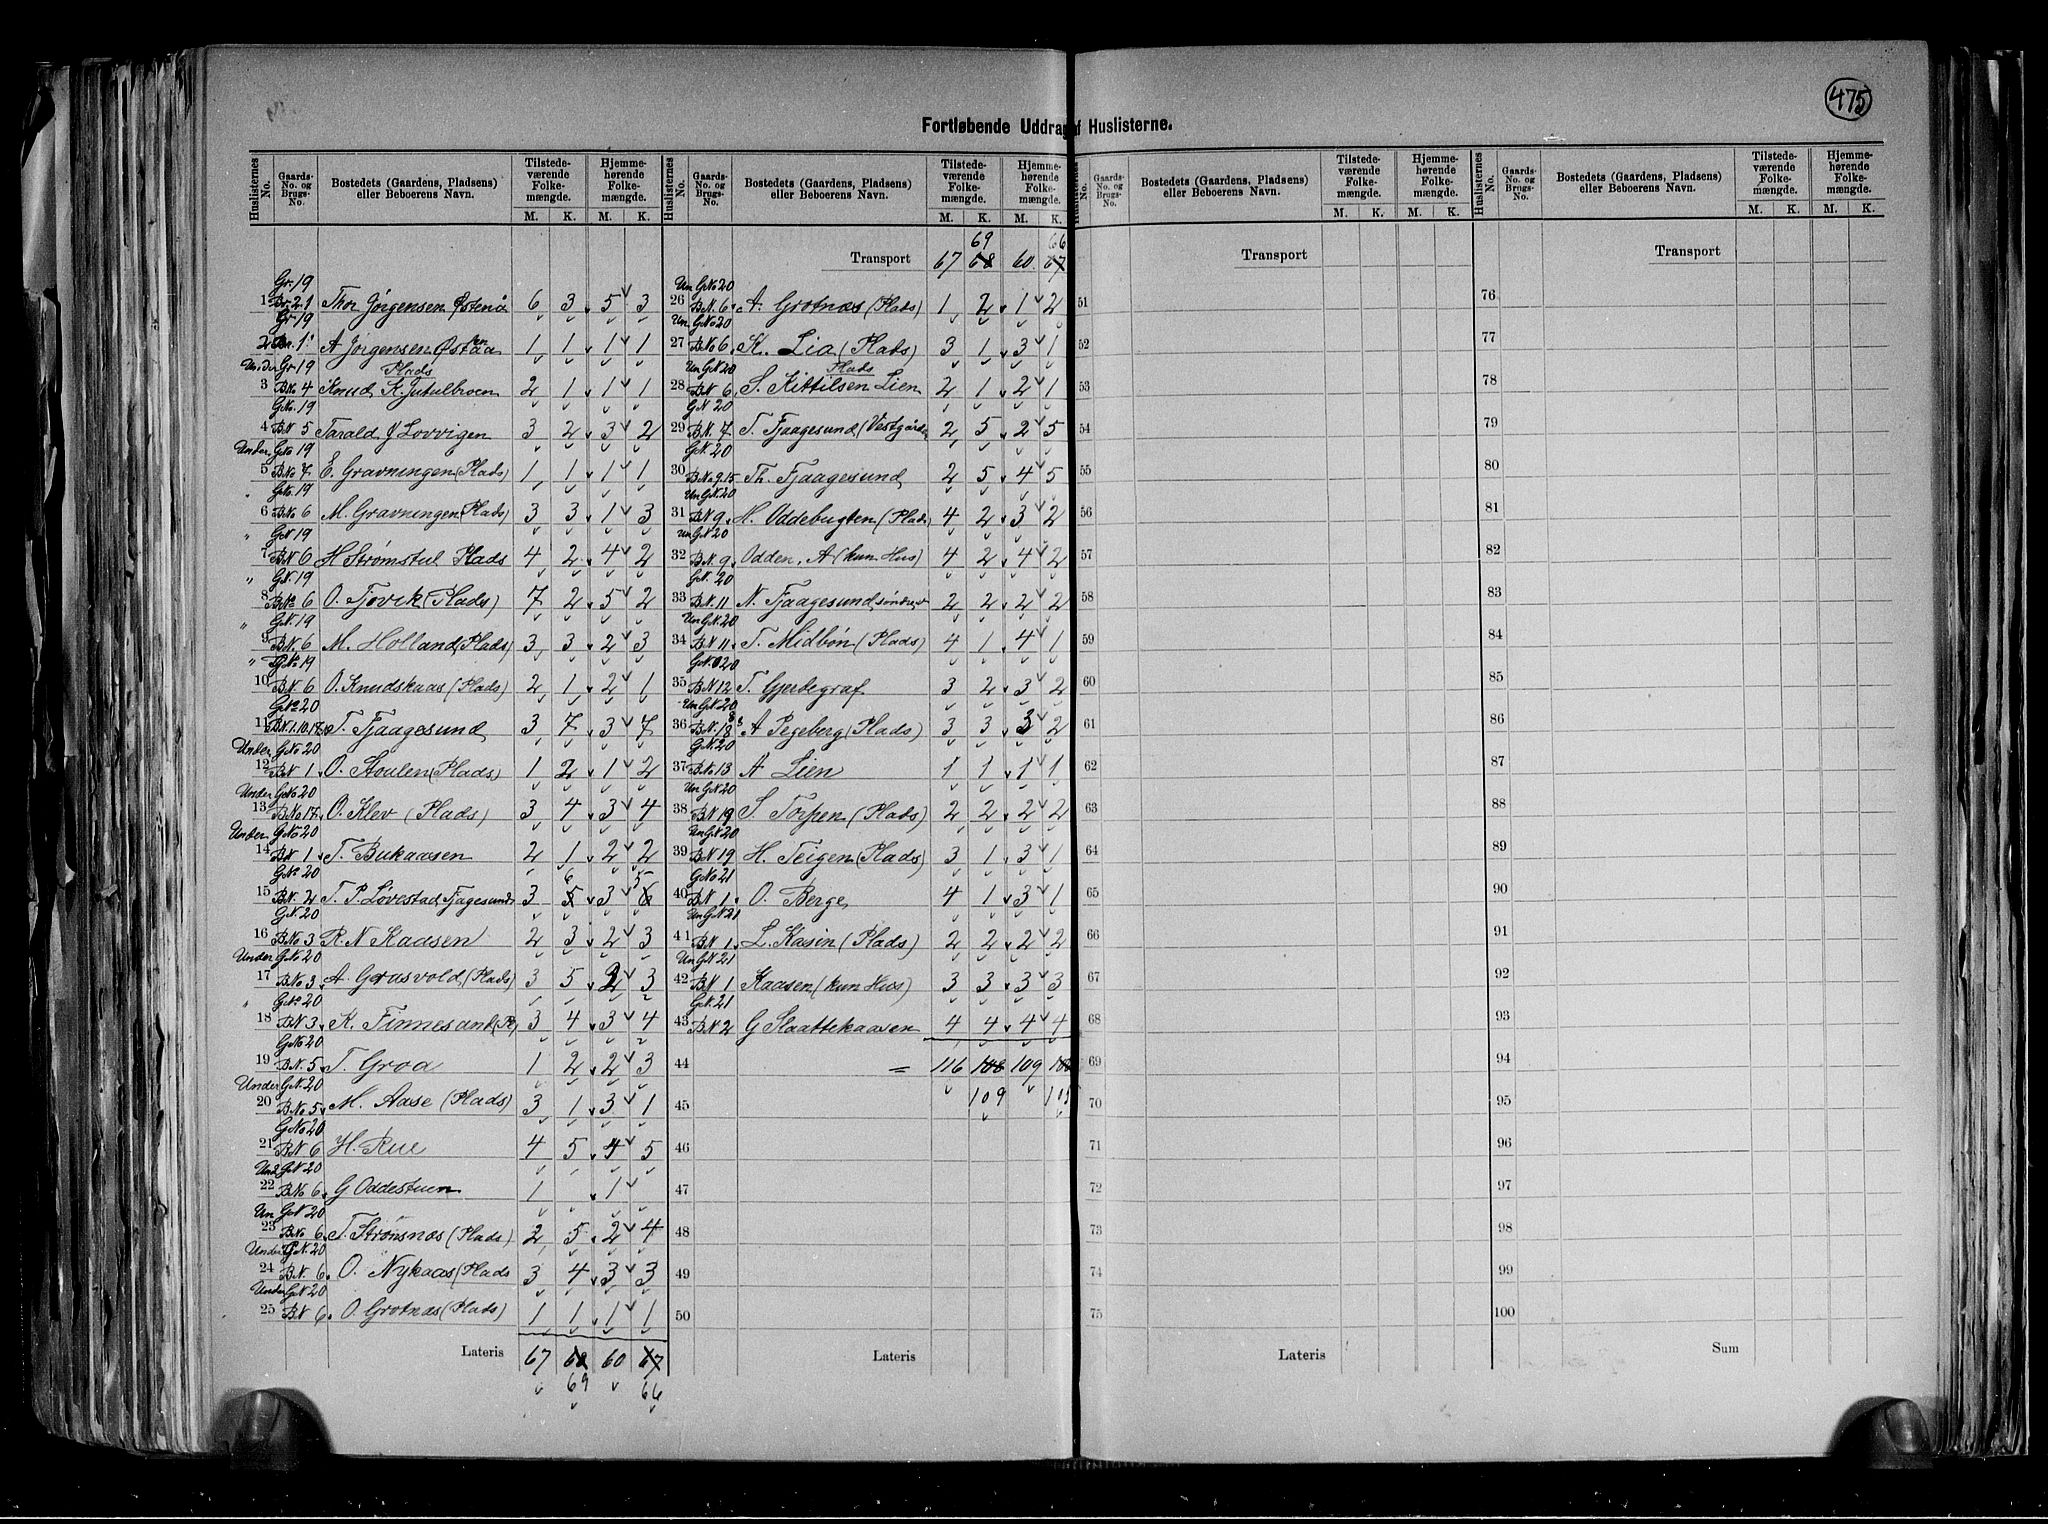 475
Fortløbende Uddrag af Huslisterne.
Huslisternes No. Gaards-No. og Brugs-No. Bostedets (Gaardens, Pladsens) eller Beboerens Navn. Tilstedeværende Folkemængde. M. K. Hjemmehørende Folkemængde. M. K.
Gr 19
1 Br 21 Thor Jørgensen 6 3 5 3
Gr 19
2 Br. 1 A Jørgensen 1 1 1 1
Under Gr 19 Plads
3 BNo 4 Knud K. Jutulbroen 2 1 1 1
GNo. 19
4 BN 5 Tarald J Lovvigen 3 2 3 2
Under GNo 19
5 BNo 7 E. Gravningen (Plads) 1 1 1 1
" GNo. 19
6 BNo 6 M. Gravningen (Plads) 3 3 1 3
" GN 19
7 BN 6 H Strømstul Plads 4 2 4 2
" GN. 19
8 BNo 6 O. Tjovik (Plads) 7 2 5 2
" GN. 19
9 BN. 6 M. Holland (Plads) 3 3 2 3
" GNo 19
10 BN. 6 O. Knudskaas (Plads) 2 1 2 1
GNo 20
11 BN. 1.10.17 T. Fjaagesund 3 7 3 7
Under GNo 20
12 BN 1. O. Stoulen (Plads) 1 2 1 2
Under GNo 20
13 BNo 17. O. Klev (Plads) 3 4 3 4
Under GNo 20
14 BN 1 T. Bukaasen 2 1 2 2
GNo 20 6 5
15 BN. 2 T. P. Lovestad Fjagesund 3 5 3 6
GN. 20
16 BNo 3 R. N Kaasen 2 3 2 3
Under GNo 20
17 BNo 3. A. Grasvold (Plads) 3 5 2 3
" GNo 20
18 BN 3. K. Finnesand (Pl) 3 4 3 4
GNo 20
19 BN. 5. T. Groa 1 2 2 3
Under GN. 20
20 BNo 5. M. Aase (Plads) 3 1 3 1
GNo 20
21 BN 6 H. Rue 4 5 4 5
Und GN 20
22 BNo 6. G Oddestuen 1 1
Un GN 20
23 BNo 6. T. Strømsnæs (Plads) 2 5 2 4
Under GN. 20
24 BN. 6. O. Nykaas (Plads 3 4 3 3
Under GN. 20
25 BN 6. O. Grotnæs (Plads) 1 1 1 1
Lateris 67 68 60 67
69 66
Huslisternes No. Gaards-No. og Brugs-No. Bostedets (Gaardens, Pladsens) eller Beboerens Navn. Tilstedeværende Folkemængde. M. K. Hjemmehørende Folkemængde. M. K.
69 66
Transport 67 68 60 67
Un GNo 20
26 BN. 6. A. Grotnæs (Plads) 1 2 1 2
Un GNo 20
27 BNo 6. K. Lia (Plads) 3 1 3 1
Un GN 20 Plads
28 BN 6. S. Kittilsen Lien 2 1 2 1
GN 20
29 BN. 7. T. Fjaagesund (Vestgarden 2 5 2 5
GN. 20
30 BNo. 9.15 Th. Fjaagesund 2 5 4 5
Un GN. 20
31 BN 9. H. Oddebugten (Plads) 4 2 3 2
Un GN. 20
32 BN. 9. Odden, A (kun Hus) 4 2 4 2
GN. 20
33 BN. 11 N. Fjaagesund søndre 2 2 2 2
Un GN. 20
34 BN 11. T. Midbøn (Plads) 4 1 4 1
GN. 20
35 BN 12 T. Gjerdegraf 3 2 3 2
Un GN. 20
36 BN. 18 A Pegeberg (Plads) 3 3 3 2
GN. 20
37 BNo 13 A Lien 1 1 1 1
Un GN 20
38 BN 19 S. Torpen (Plads) 2 2 2 2
Un GN 20
39 BN 19 H. Teigen (Plads) 3 1 3 1
GNo 21
40 BN 1. O. Berge 4 1 3 1
Un GN 21
41 BN 1. L. Kasin (Plads) 2 2 2 2
Un GN 21
42 BN 1 Kaasen (kun Hus) 3 3 3 3
GN. 21
43 BN 2 G Slaattekaasen 4 4 4 4
44 = 116 108 109
45 109
46
47
48
49
50
Lateris
Huslisternes No. Gaards-No. og Brugs-No. Bostedets (Gaardens, Pladsens) eller Beboerens Navn. Tilstedeværende Folkemængde. M. K. Hjemmehørende Folkemængde. M. K.
Transport
51
52
53
54
55
56
57
58
59
60
61
62
63
64
65
66
67
68
69
70
71
72
73
74
75
Lateris
Huslisternes No. Gaards-No. og Brugs-No. Bostedets (Gaardens, Pladsens) eller Beboerens Navn. Tilstedeværende Folkemængde. M. K. Hjemmehørende Folkemængde. M. K.
Transport
76
77
78
79
80
81
82
83
84
85
86
87
88
89
90
91
92
93
94
95
96
97
98
99
100
Sum